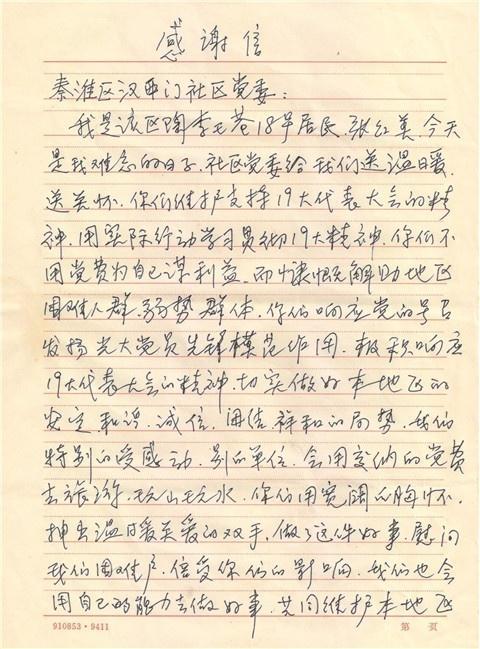 感谢信
秦淮区汉西门社区党委：
我是该区陶李王巷18号居民，张红美，今天
是我难忘的日子，社区党委给我们送温暖，
送关怀，你们维护支持19大代表大会的精
神，用实际行动学习贯彻19大精神，你们不
用党费为自己谋利益，而慷慨解助地区
困难人群，弱势群体，你们响应党的号召
发扬光大党员先锋模范作用，积积响应
19大代表大会的精神，切实做好本地区的
安定和谐，诚信，团结祥和的局势，我们
特别的受感动，别的单位，会用交纳的党费
去旅游，玩山玩水，你们用宽阔的胸怀，
抻出温暖关爱的双手，做了这件好事，慰问
我们困难户，倍受你们的影响，我们也会
用自己的能力去做好事，共同维护本地区
910853·9411 第 页